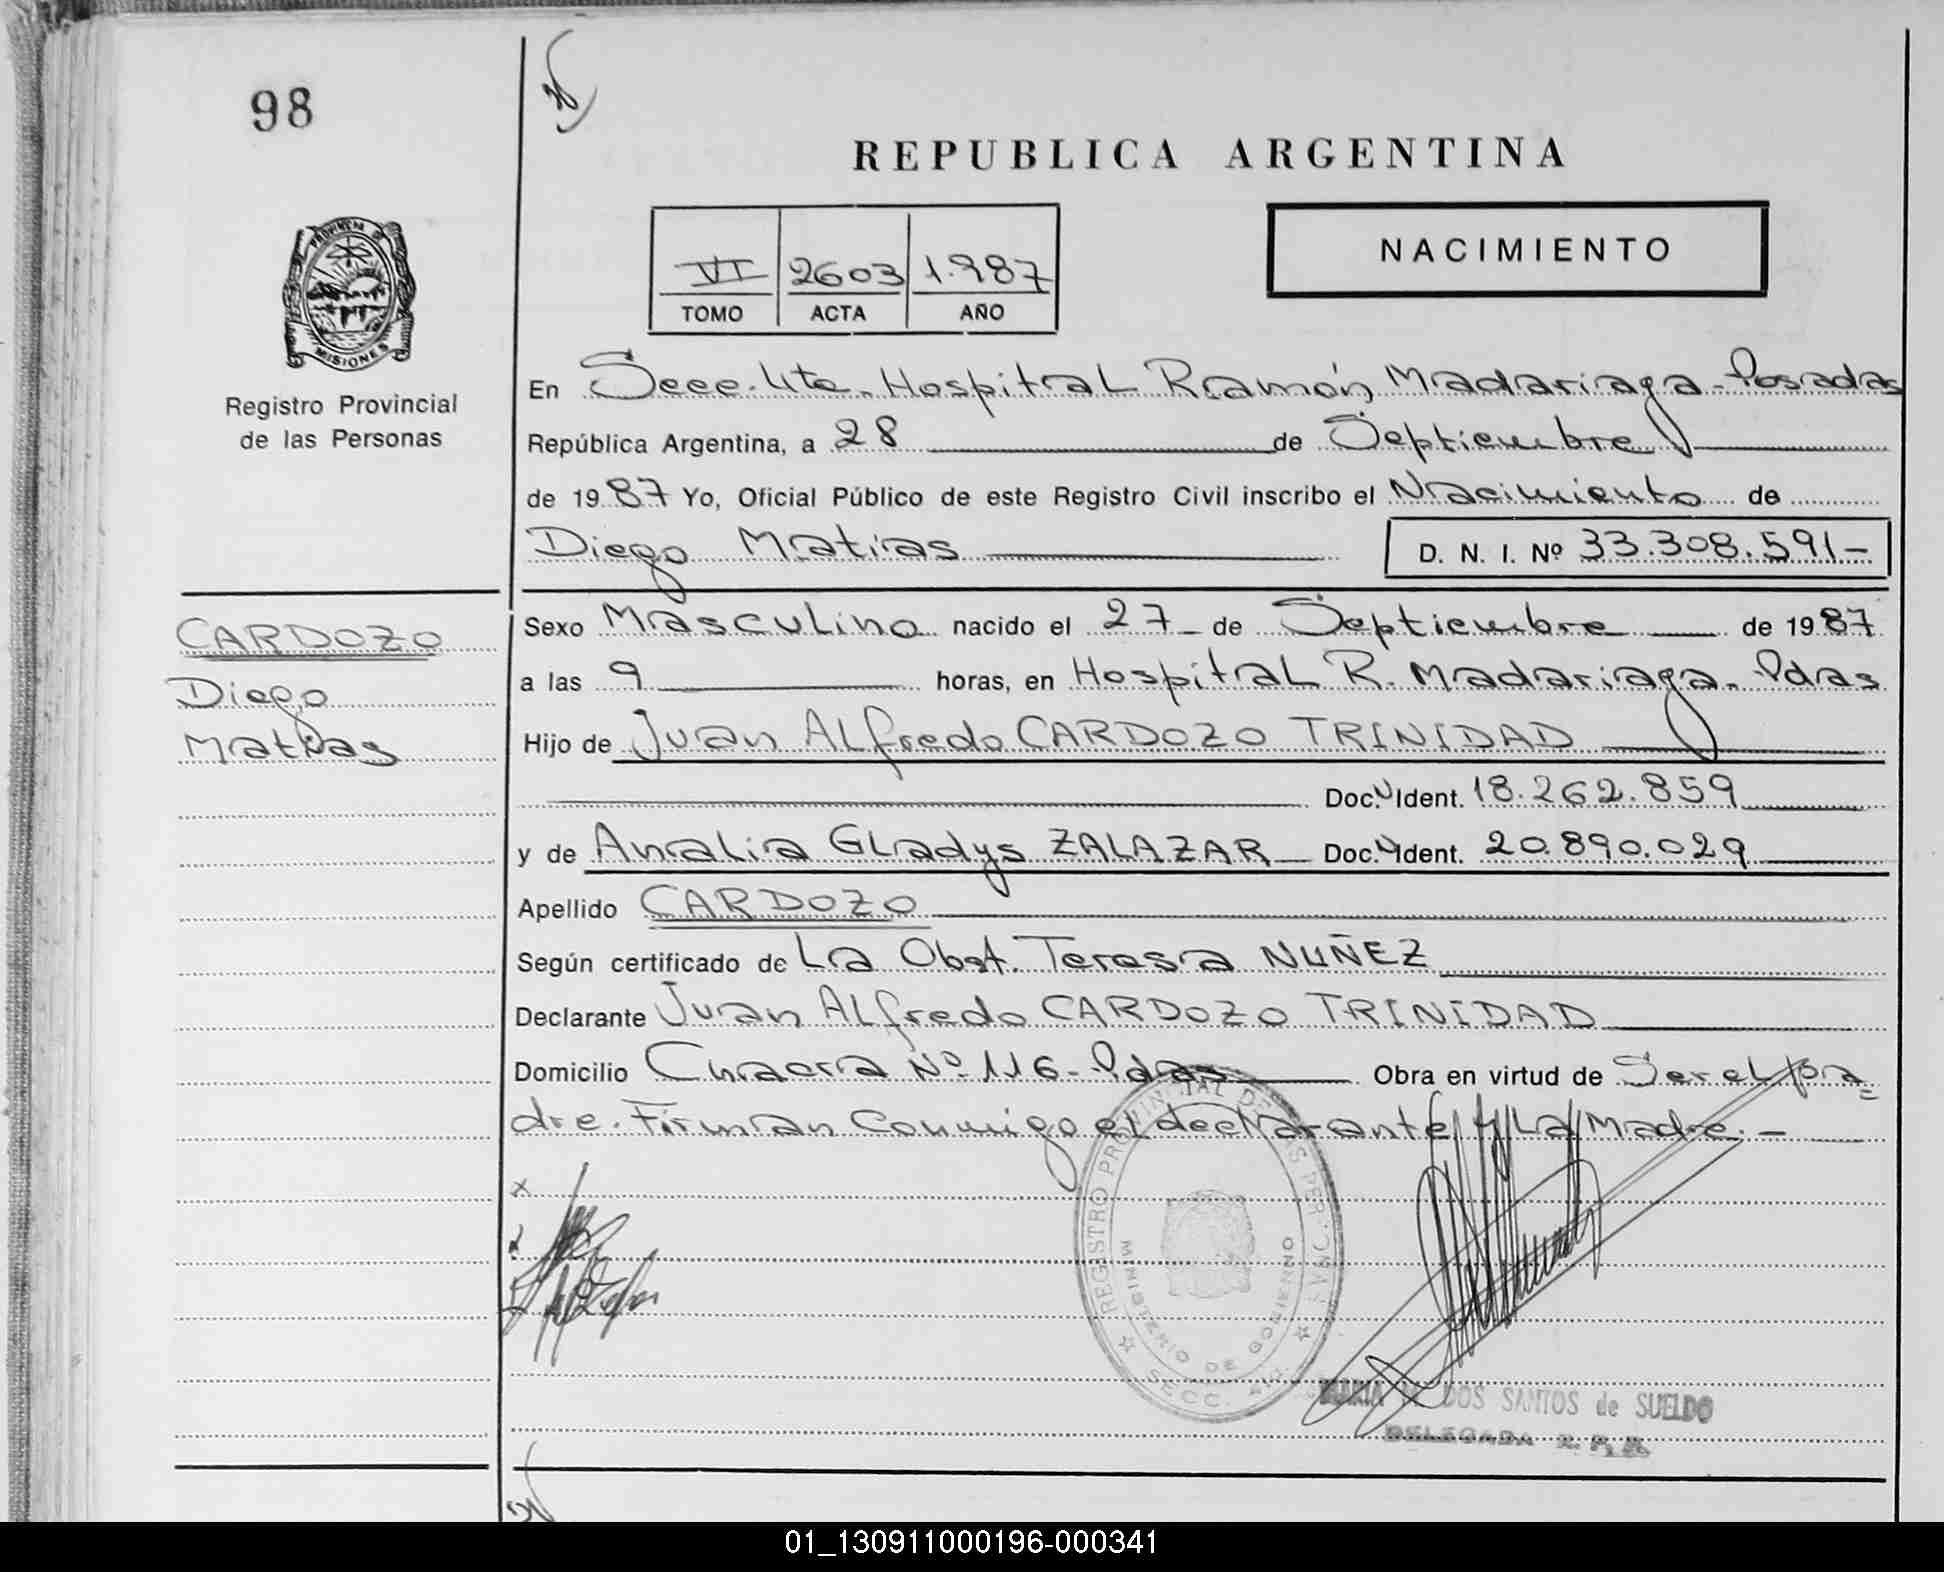 98
REPUBLICA ARGENTINA
PROVINCIA DE
MISIONES
Registro Provincial
de las Personas
VI 2603 1.987
TOMO ACTA AÑO
NACIMIENTO
En Secc. 4ta. Hospital Ramón Madariaga - Posadas
República Argentina, a 28 de Septiembre
de 1987 Yo, Oficial Público de este Registro Civil inscribo el Nacimiento de
Diego Matias
D. N. I. Nº 33.308.591-
CARDOZO
Diego
Matias
Sexo Masculino nacido el 27 de Septiembre de 1987
a las 9 horas, en Hospital R. Madariaga - Pdas
Hijo de Juan Alfredo CARDOZO TRINIDAD
Doc. Ident. 18.262.859
y de Analia Gladys ZALAZAR Doc. Ident. 20.890.029
Apellido CARDOZO
Según certificado de La Obst. Teresa NUÑEZ
Declarante Juan Alfredo CARDOZO TRINIDAD
Domicilio Chacra Nº 116 - Pdas Obra en virtud de Ser el pa=
dre. Firman Conmigo el declarante y La Madre. -
REGISTRO PROVINCIAL DE LAS PER
MINISTERIO DE GOBIERNO
SECC. 4ta
MARIA M. DOS SANTOS de SUELDO
DELEGADA R. P. P.
01_130911000196-000341